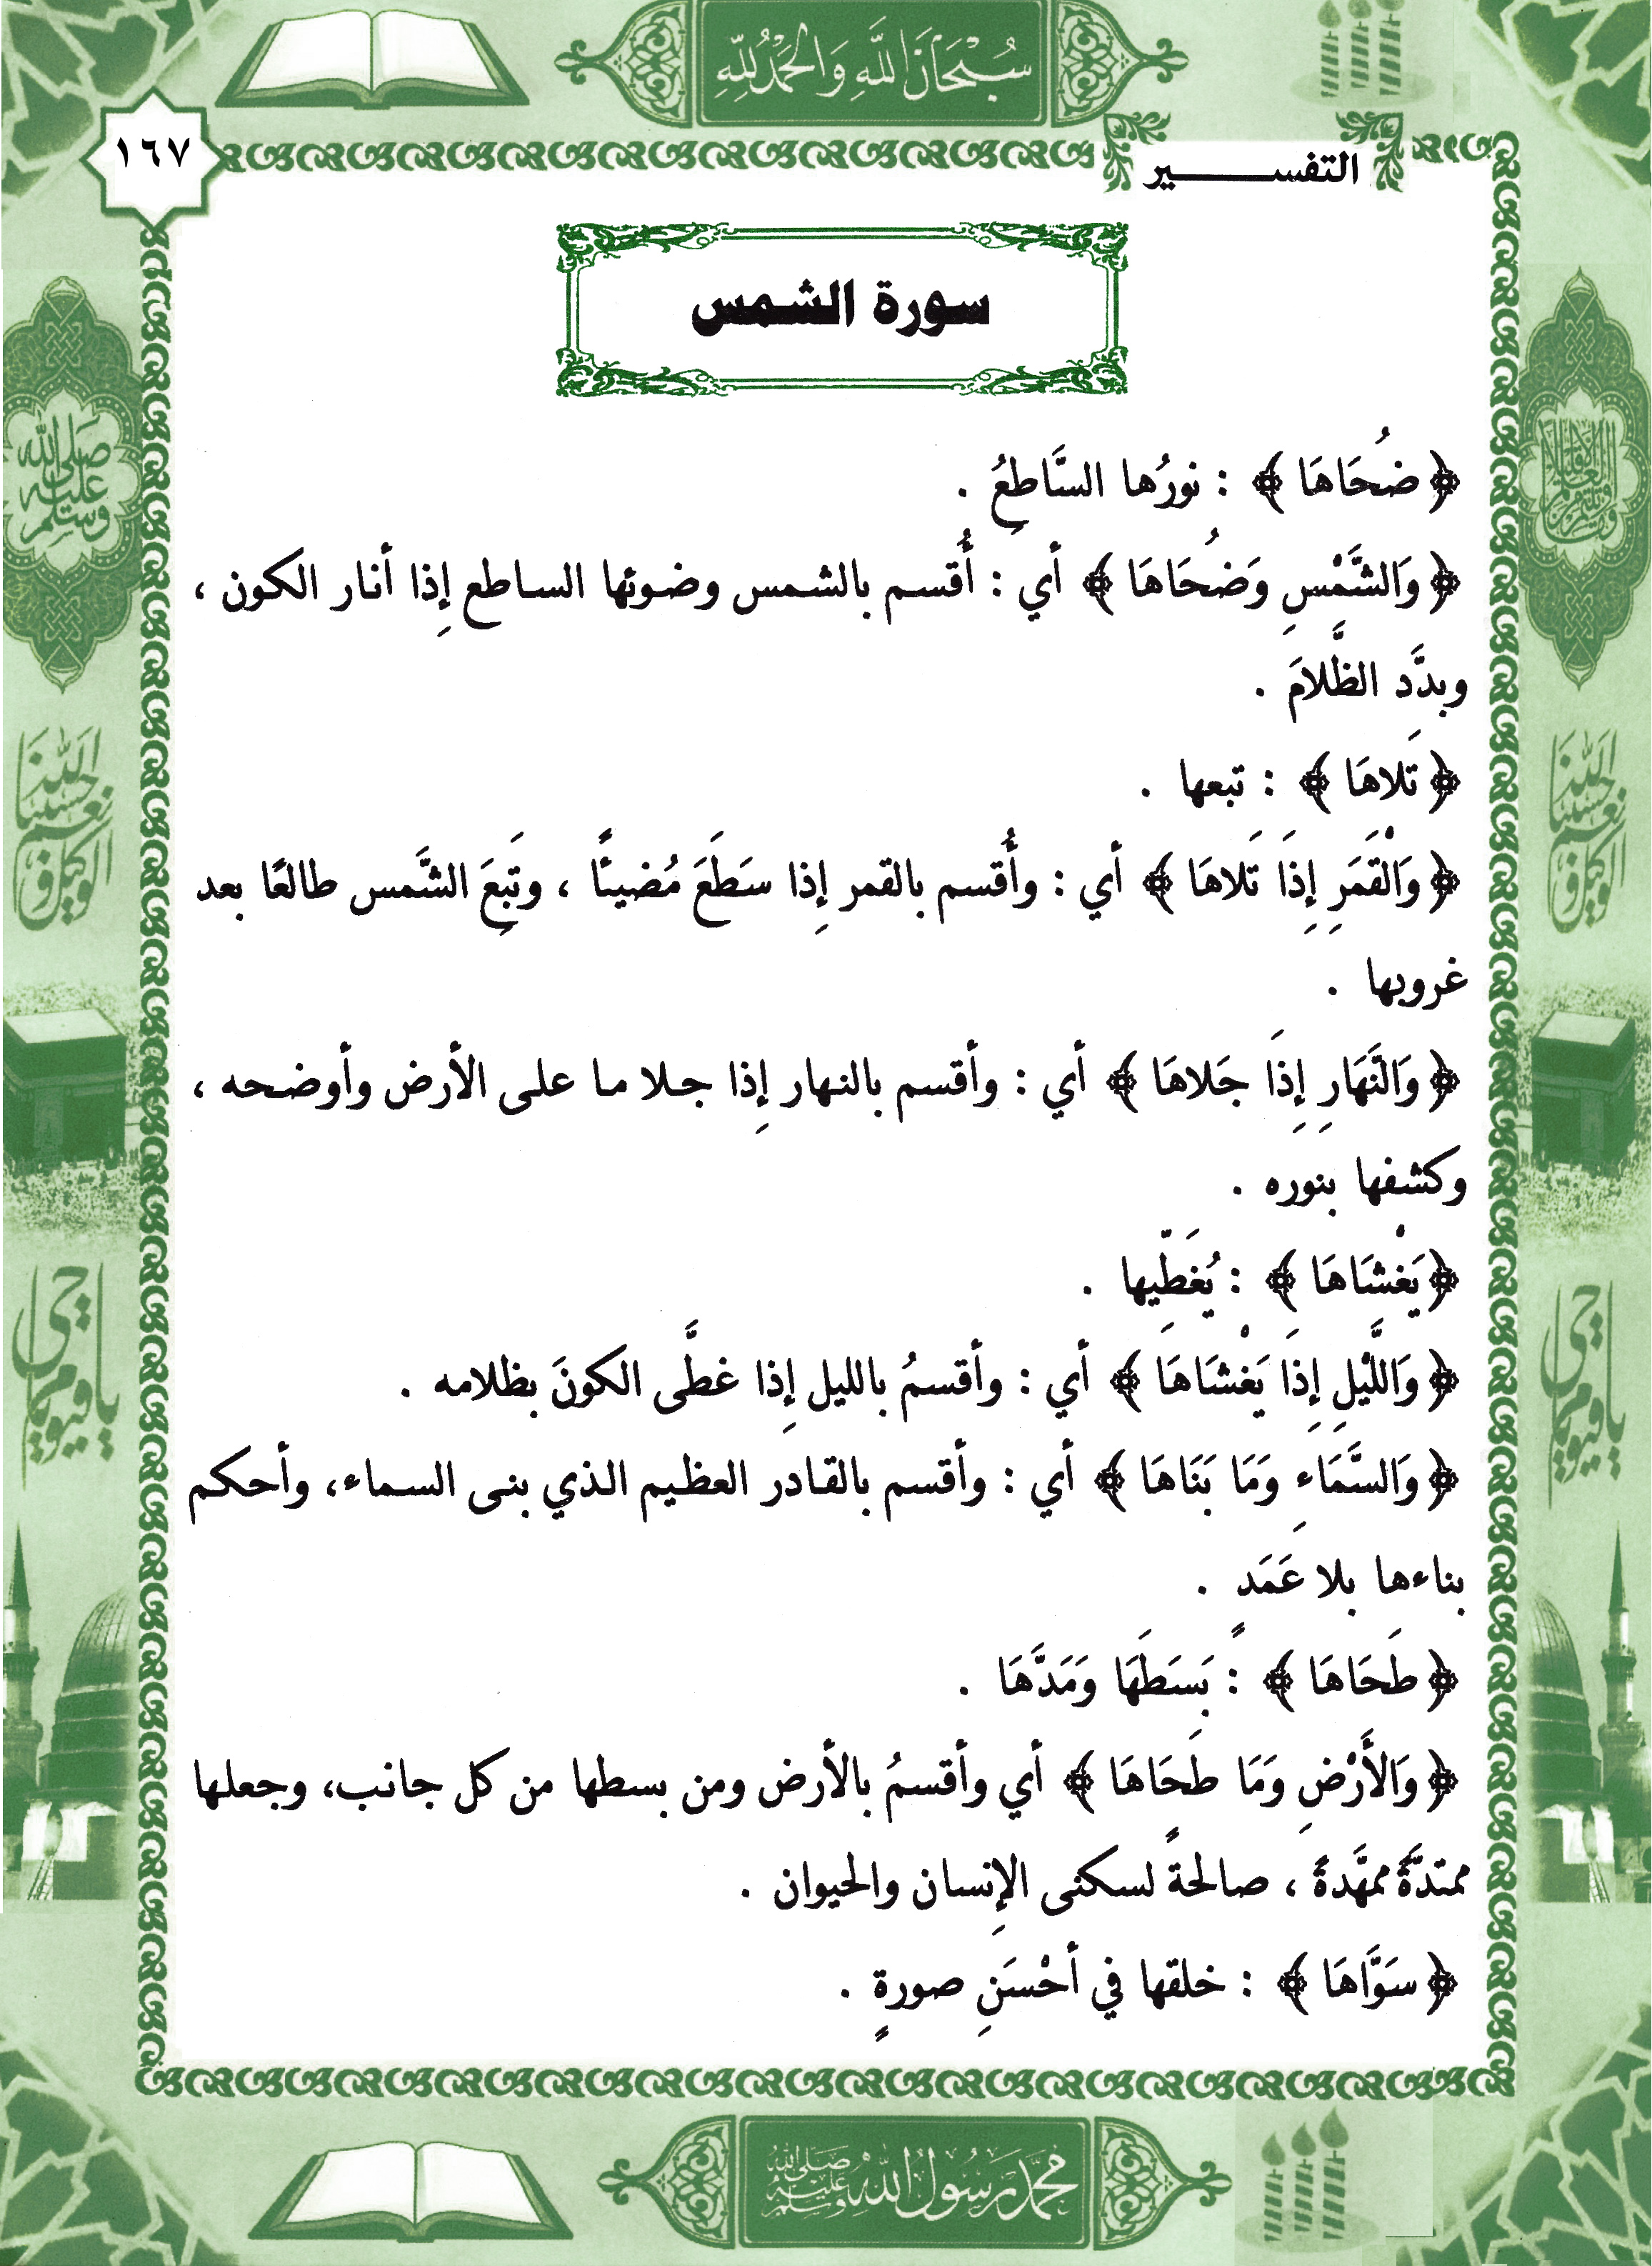 سُبْحَانَ اللَّهِ وَالْحَمْدُ لِلَّهِ
١٦٧
التفسير
سورة الشمس
﴿ ضُحَاهَا ﴾ : نورُها السَّاطِعُ .
﴿ وَالشَّمْسِ وَضُحَاهَا ﴾ أي : أُقسم بالشمس وضوئها الساطع إِذا أنار الكون ،
وبدَّد الظَّلامَ .
﴿ تَلاهَا ﴾ : تبعها .
﴿ وَالْقَمَرِ إِذَا تَلاهَا ﴾ أي : وأُقسم بالقمر إِذا سَطَعَ مُضيئًا ، وتَبِعَ الشَّمس طالعًا بعد
غروبها .
﴿ وَالنَّهَارِ إِذَا جَلاهَا ﴾ أي : وأقسم بالنهار إِذا جلا ما على الأرض وأوضحه ،
وكشفها بنوره .
﴿ يَغْشَاهَا ﴾ : يُغَطِّيها .
﴿ وَاللَّيْلِ إِذَا يَغْشَاهَا ﴾ أي : وأقسمُ بالليل إِذا غطَّى الكونَ بظلامه .
﴿ وَالسَّمَاءِ وَمَا بَنَاهَا ﴾ أي : وأقسم بالقادر العظيم الذي بنى السماء، وأحكم
بناءها بلا عَمَد .
﴿ طَحَاهَا ﴾ : بَسَطَهَا وَمَدَّهَا .
﴿ وَالأَرْضِ وَمَا طَحَاهَا ﴾ أي وأقسمُ بالأرض ومن بسطها من كل جانب، وجعلها
ممتدَّةً ممهَّدةً ، صالحةً لسكنى الإِنسان والحيوان .
﴿ سَوَّاهَا ﴾ : خلقها في أحْسَنِ صورةٍ .
صلى الله عليه وسلم
حسبنا الله ونعم الوكيل
حسبنا الله ونعم الوكيل
يا حي يا قيوم
يا حي يا قيوم
محمد رسول الله صلى الله عليه وسلم